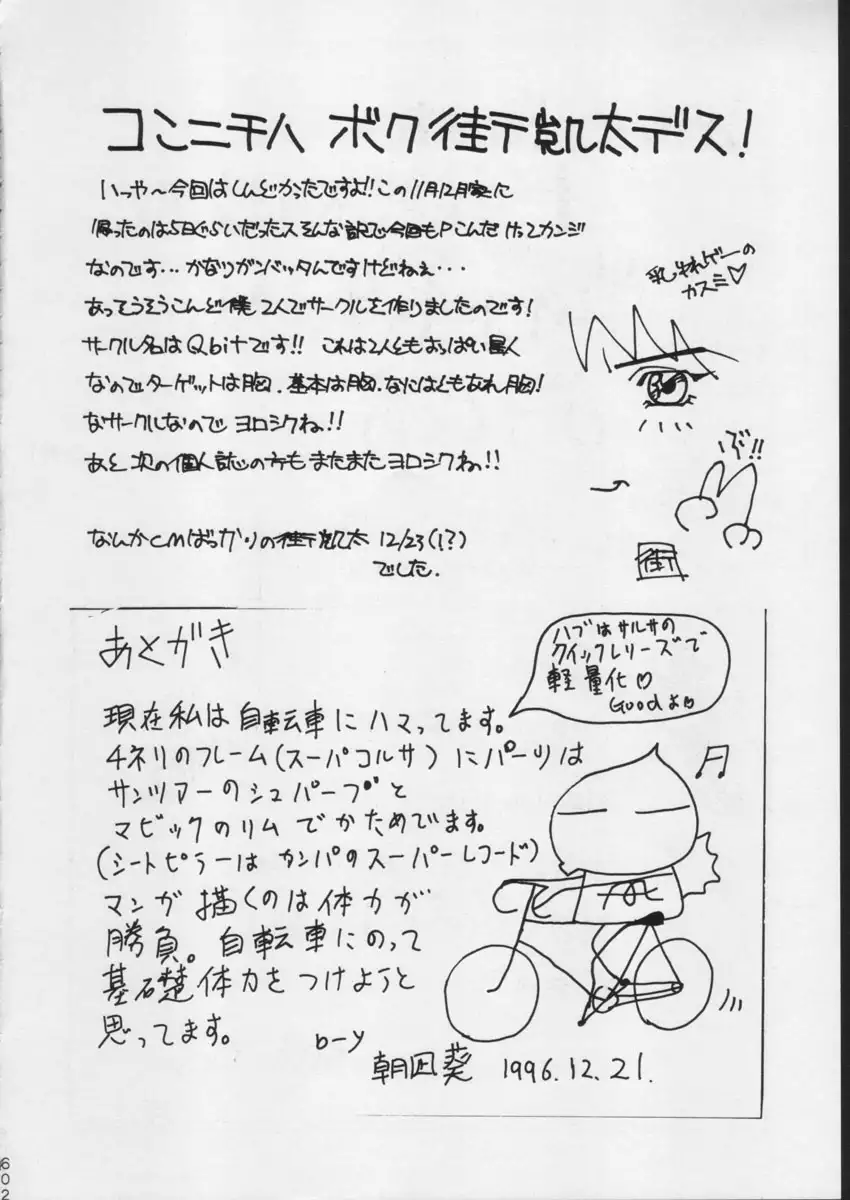 コンニチハ ボク街テ凱太デス!
いっや〜今回はしんどかったですよ!!この11月12月家に
帰ったのは5日ぐらいだったスそんな訳で今回もPこんだけってカンジ
なのです…かなりガンバッタんですけどねぇ・・・
あっそうそうこんど僕2人でサークルを作りましたのです!
サークル名はQbitです!! これは2人ともおっぱい星人
なのでターゲットは胸、基本は胸、なにはともあれ胸!
なサークルなので ヨロシクね!!
あと次の個人誌の方もまたまたヨロシクねっ!!
なんかCMばっかりの街テ凱太 12/23(!?)
でした.
乳ゆれゲーの
カスミ♡
ぷ!!
街テ
あとがき
現在私は自転車にハマってます。
チネリのフレーム(スーパコルサ)にパーツは
サンツアーのシュパーブと
マビックのリムでかためています。
(シートピラーはカンパのスーパーレコード)
マンガ描くのは体力が
勝負。自転車にのって
基礎体力をつけようと
思ってます。
b-y
朝凪葵 1996.12.21.
ハブはサルサの
クイックレリーズで
軽量化♡
Goodよ♡
602